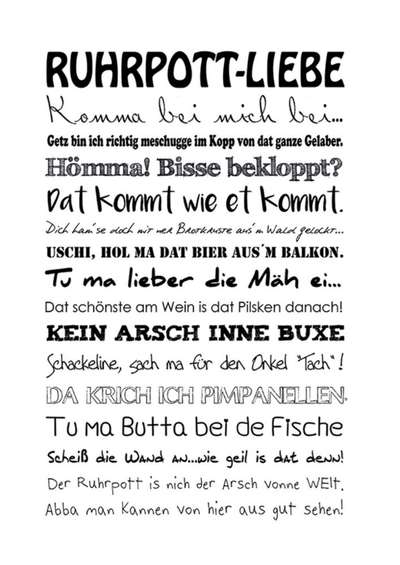 RUHRPOTT-LIEBE
Komma bei mich bei...
Getz bin ich richtig meschugge im Kopp von dat ganze Gelaber.
Hömma! Bisse bekloppt?
Dat kommt wie et kommt.
Dich ham'se doch mit ner Brotkruste aus'm Wald gelockt...
USCHI, HOL MA DAT BIER AUS´M BALKON.
Tu ma lieber die Mäh ei...
Dat schönste am Wein is dat Pilsken danach!
KEIN ARSCH INNE BUXE
Schackeline, sach ma für den Onkel "Tach"!
DA KRICH ICH PIMPANELLEN.
Tu ma Butta bei de Fische
Scheiß die Wand an...wie geil is dat denn!
Der Ruhrpott is nich der Arsch vonne Welt.
Abba man kannen von hier aus gut sehen!